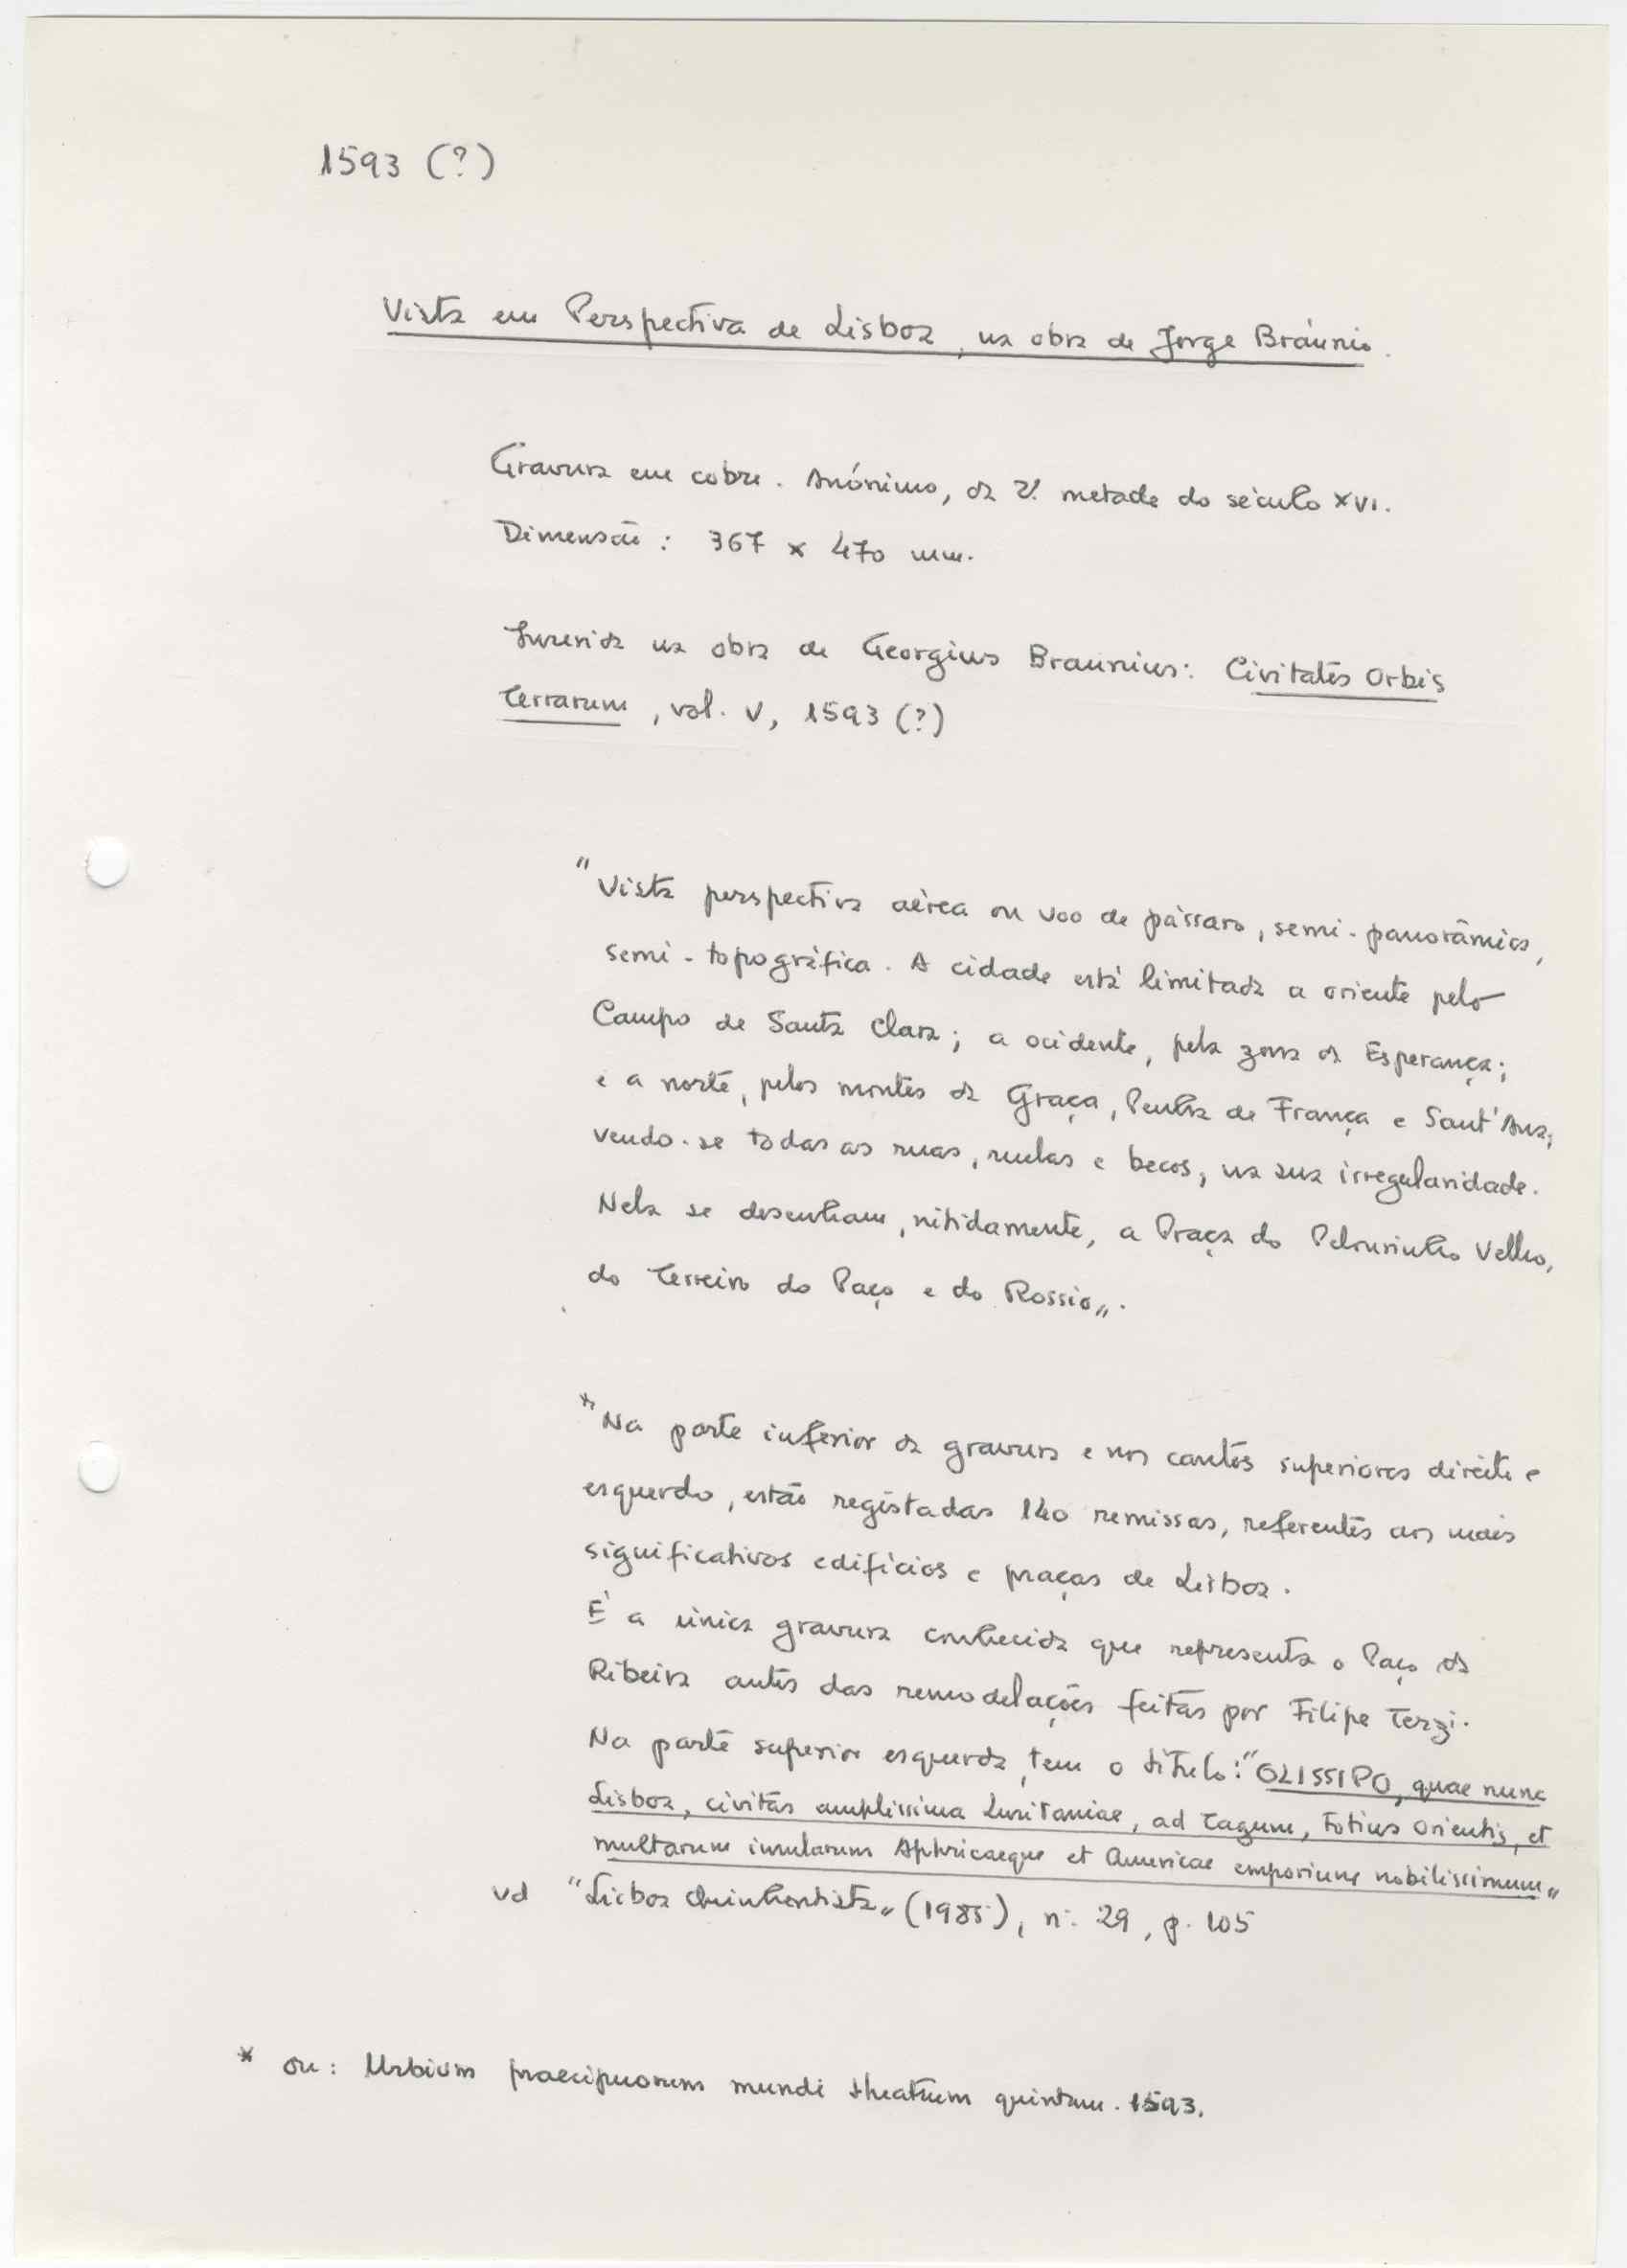 1593 (?)
Vista em Perspectiva de Lisboa, na obra de Jorge Bráunio.
Gravura em cobre. Anónimo, da 2ª metade do século XVI.
Dimensão: 367 x 470 mm.
Inserida na obra de Georgius Braunius: Civitates Orbis
Terrarum, vol. V, 1593 (?)
"Vista perspectiva aérea ou voo de pássaro, semi-panorâmica,
semi-topográfica. A cidade está limitada a oriente pelo
Campo de Santa Clara; a ocidente, pela zona da Esperança;
e a norte, pelos montes da Graça, Penha de França e Sant'Ana;
vendo-se todas as ruas, ruelas e becos, na sua irregularidade.
Nela se desenham, nitidamente, a Praça do Pelourinho Velho,
do Terreiro do Paço e do Rossio".
"Na parte inferior da gravura e nos cantos superiores direito e
esquerdo, estão registadas 140 remissas, referentes aos mais
significativos edifícios e praças de Lisboa.
É a única gravura conhecida que representa o Paço da
Ribeira antes das remodelações feitas por Filipe Terzi.
Na parte superior esquerda, tem o título: "OLISSIPO, quae nunc
Lisboa, civitas amplissima Lusitaniae, ad Tagum, totius orientis, et
multarum insularum Aphricaeque et Americae emporium nobilissimum"
vd "Lisboa Quinhentista" (1985), nº 29, p. 105
* ou: Urbium praecipuorum mundi theatrum quintum. 1593.